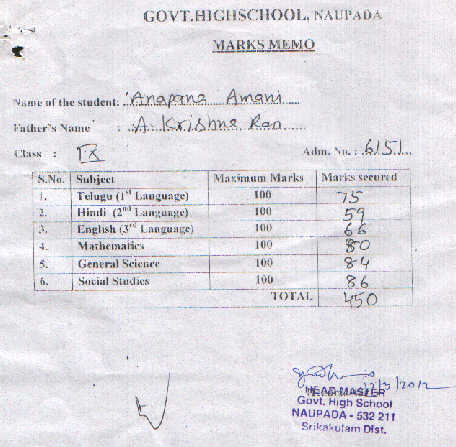 GOVT.HIGHSCHOOL, NAUPADA
MARKS MEMO
Name of the student: Anapana Amani
Father's Name : A. Krishna Rao
Class : IX Adm. No. : 6151
S.No. Subject Maximum Marks Marks secured
1. Telugu (1st Language) 100 75
2. Hindi (2nd Language) 100 59
3. English (3rd Language) 100 66
4. Mathematics 100 80
5. General Science 100 84
6. Social Studies 100 86
TOTAL 450
HEAD MASTER
Govt. High School
NAUPADA - 532 211
Srikakulam Dist.